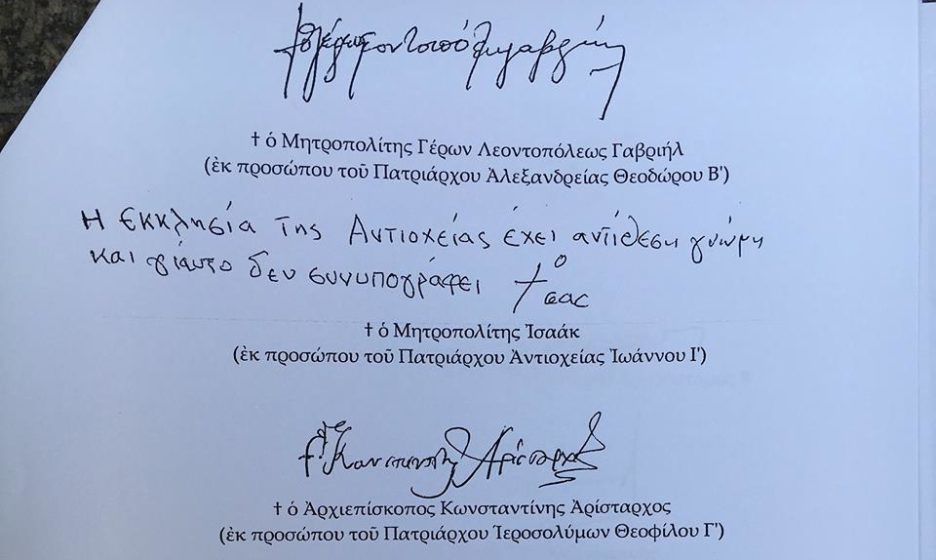 † ὁ Μητροπολίτης Γέρων Λεοντοπόλεως Γαβριήλ
(ἐκ προσώπου τοῦ Πατριάρχου Ἀλεξανδρείας Θεοδώρου Β')
Η Εκκλησία της Αντιοχείας έχει αντίθεση γνώμη
και γιαυτο δεν συνυπογράφει †
† ὁ Μητροπολίτης Ἰσαάκ
(ἐκ προσώπου τοῦ Πατριάρχου Ἀντιοχείας Ἰωάννου Ι')
† ὁ Ἀρχιεπίσκοπος Κωνσταντίνης Ἀρίσταρχος
(ἐκ προσώπου τοῦ Πατριάρχου Ἱεροσολύμων Θεοφίλου Γ')